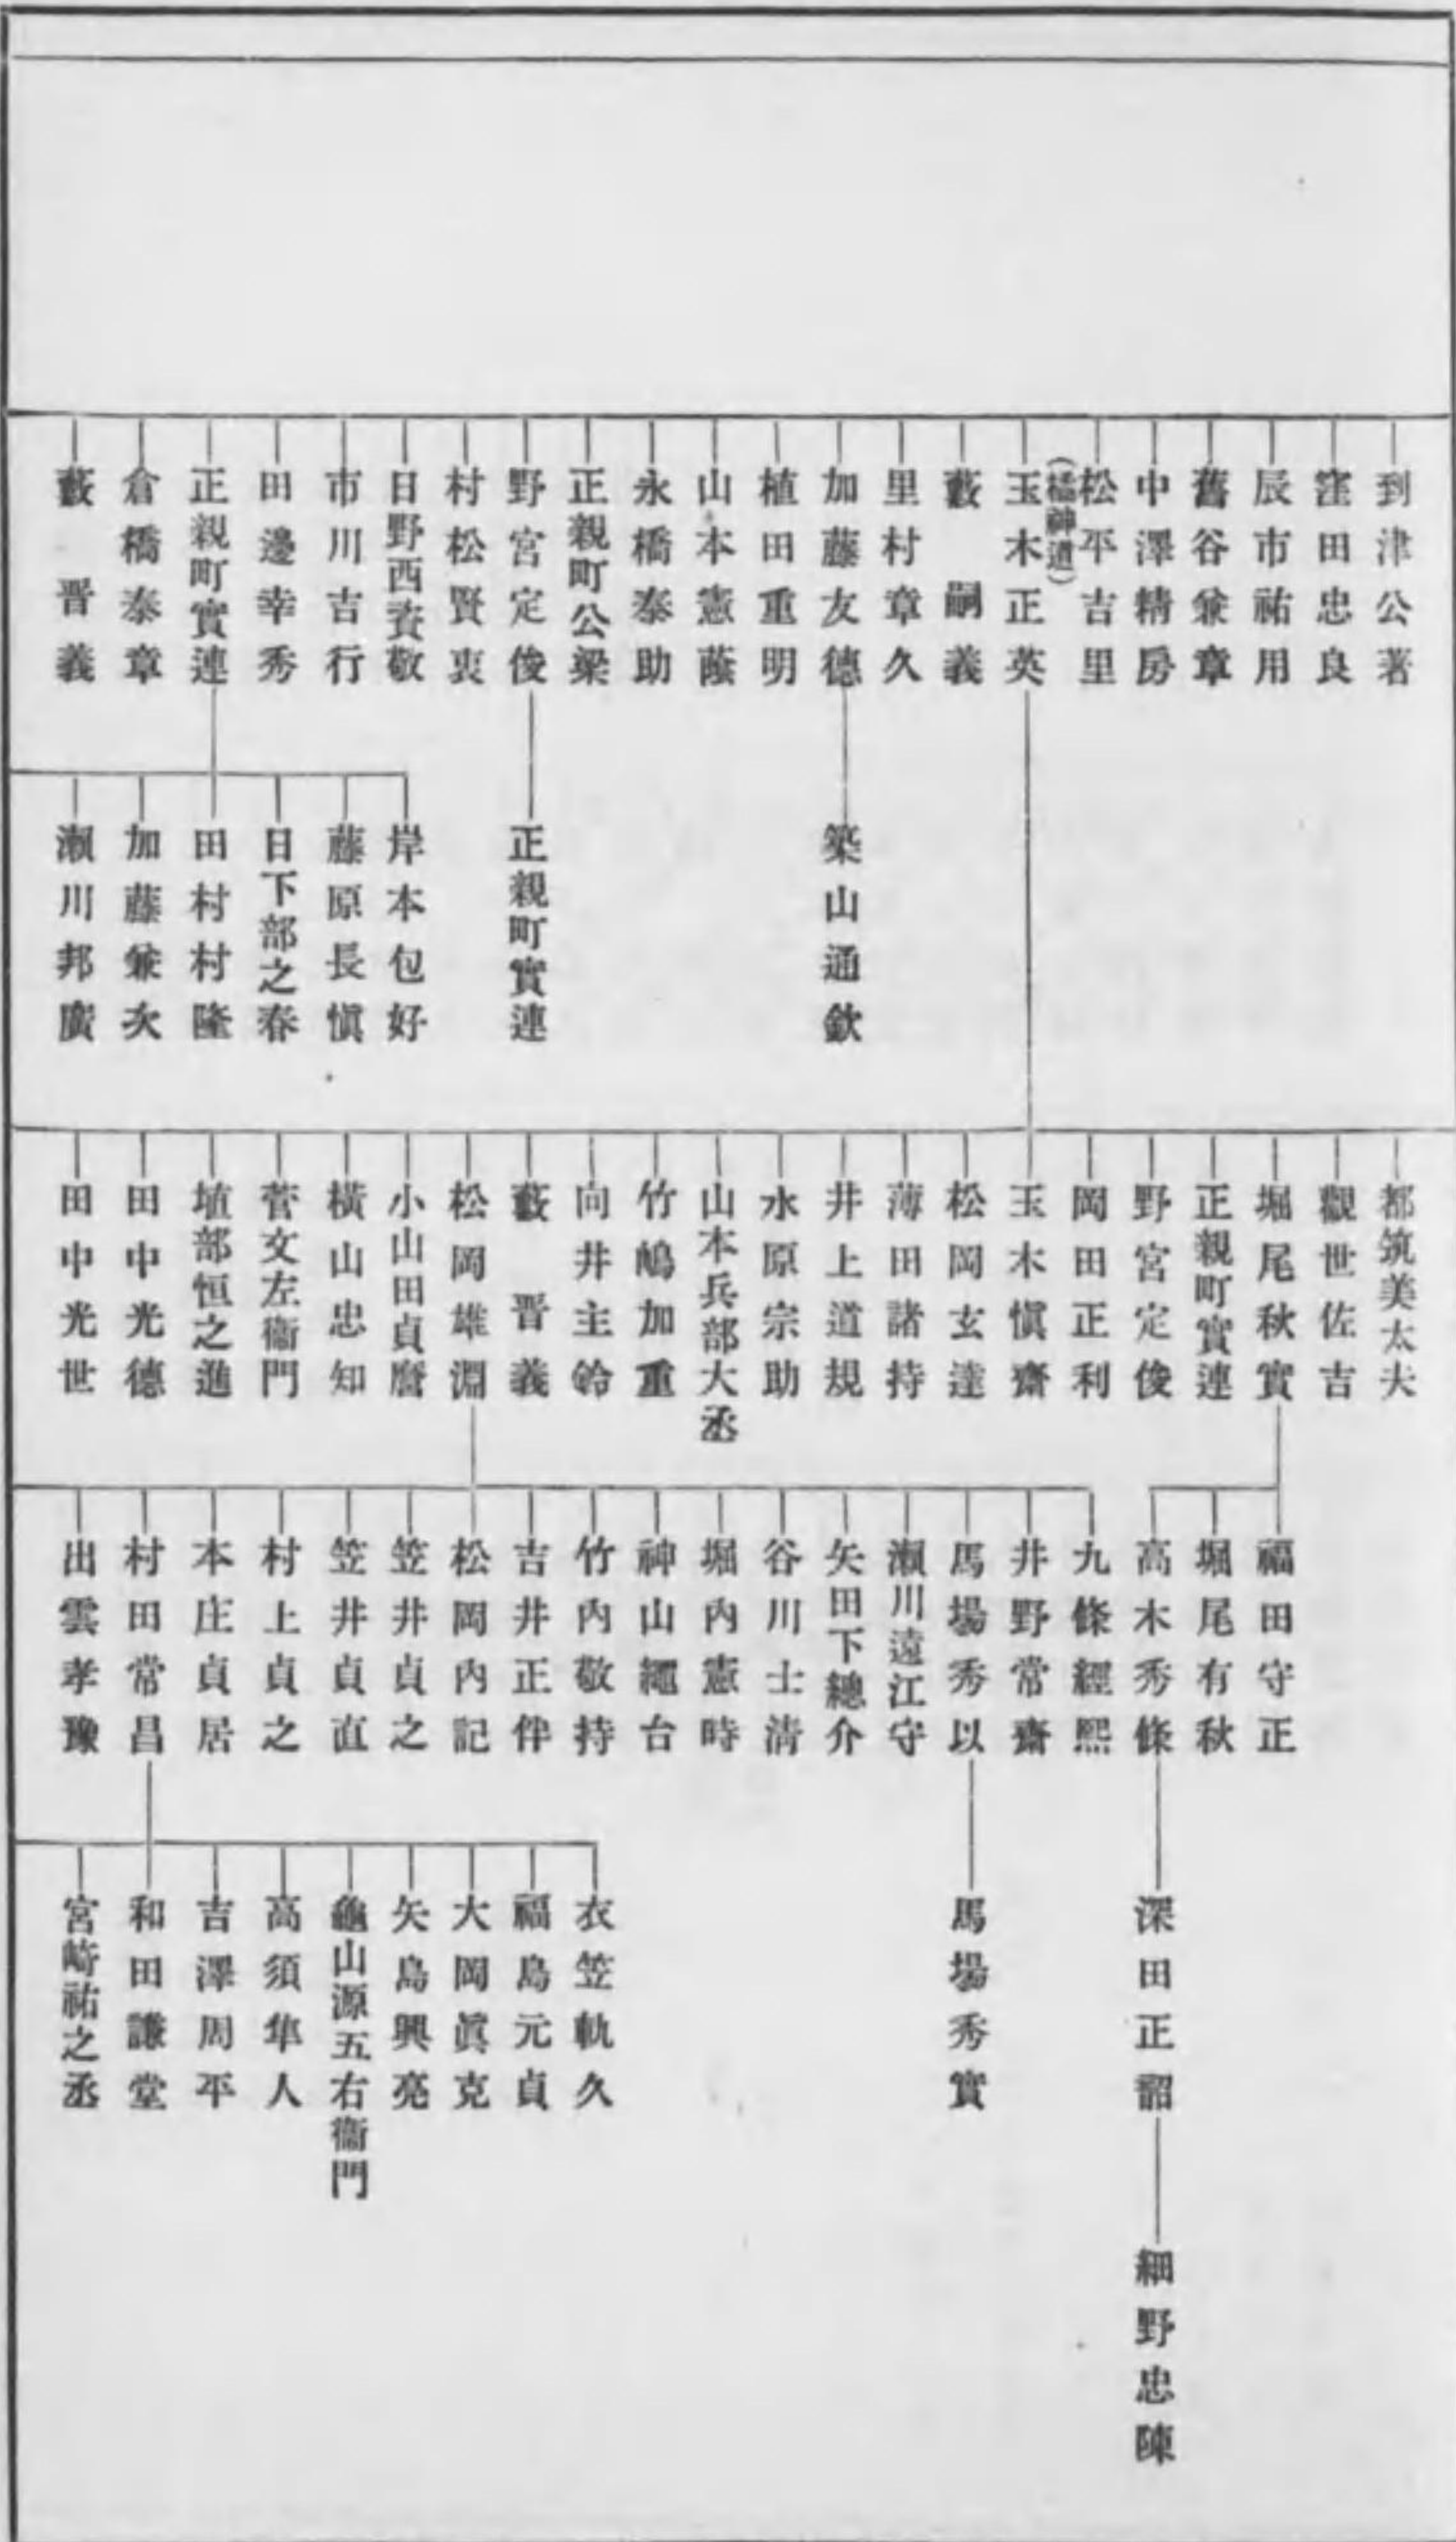 到津公著
窪田忠良
辰市祐用
舊谷兼章
中澤精房
松平吉里
(橘神道)
玉木正英
藪嗣義
里村章久
加藤友德
植田重明
山本憲蔭
永橋泰助
正親町公梁
野宮定俊
村松賢衷
日野西資敬
市川吉行
田邊幸秀
正親町實連
倉橋泰章
藪晋義
築山通欽
正親町實連
岸本包好
藤原長愼
日下部之春
田村村隆
加藤兼次
瀬川邦廣
都筑美太夫
觀世佐吉
堀尾秋實
正親町實連
野宮定俊
岡田正利
玉木愼齋
松岡玄達
薄田諸持
井上道規
水原宗助
山本兵部大丞
竹嶋加重
向井主鈴
藪晋義
松岡雄淵
小山田貞曆
橫山忠知
菅文左衞門
埴部恒之進
田中光德
田中光世
福田守正
堀尾有秋
高木秀條
九條經熙
井野常齋
馬場秀以
瀬川遠江守
矢田下總介
谷川士淸
堀內憲時
神山繩台
竹內敬持
吉井正伴
松岡內記
笠井貞之
笠井貞直
村上貞之
本庄貞居
村田常昌
出雲孝豫
深田正韶
馬場秀實
衣笠軌久
福島元貞
大岡眞克
矢島興亮
龜山源五右衞門
高須隼人
吉澤周平
和田謙堂
宮崎祐之丞
細野忠陳